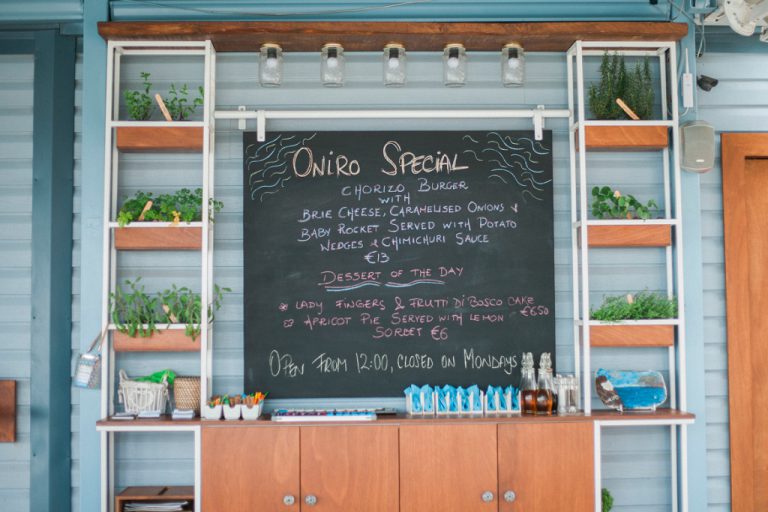 ONIRO SPECIAL
CHORIZO BURGER
WITH
BRIE CHEESE, CARAMELISED ONIONS &
BABY ROCKET SERVED WITH POTATO
WEDGES & CHIMICHURI SAUCE
€13
DESSERT OF THE DAY
LADY FINGERS & FRUTTI DI BOSCO CAKE €6.50
APRICOT PIE SERVED WITH LEMON
SORBET €6
OPEN FROM 12:00, CLOSED ON MONDAYS